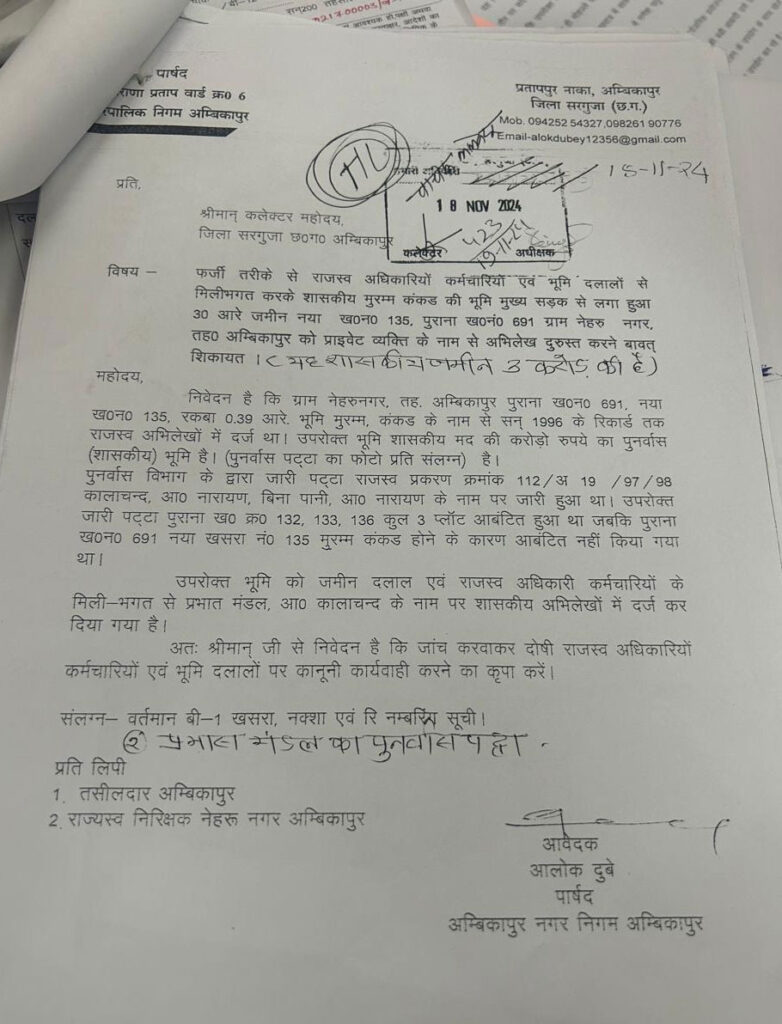 सन200
217-00003/
पार्षद
राणा प्रताप वार्ड क्र0 6
पालिक निगम अम्बिकापुर
प्रतापपुर नाका, अम्बिकापुर
जिला सरगुजा (छ.ग.)
Mob. 094252 54327,098261 90776
Email-alokdubey12356@gmail.com
TL
18-11-24
18 NOV 2024
423
19-11-24
कलेक्टर अधीक्षक
प्रति,
श्रीमान् कलेक्टर महोदय,
जिला सरगुजा छ0ग0 अम्बिकापुर
विषय – फर्जी तरीके से राजस्व अधिकारियों कर्मचारियों एवं भूमि दलालों से
मिलीभगत करके शासकीय मुरम्म कंकड की भूमि मुख्य सड़क से लगा हुआ
30 आरे जमीन नया ख0नं0 135, पुराना ख0नं0 691 ग्राम नेहरु नगर,
तह0 अम्बिकापुर को प्राइवेट व्यक्ति के नाम से अभिलेख दुरुस्त करने बावत्
शिकायत । (यह शासकीय जमीन 3 करोड़ की है)
महोदय,
निवेदन है कि ग्राम नेहरुनगर, तह. अम्बिकापुर पुराना ख0न0 691, नया
ख0न0 135, रकबा 0.39 आरे. भूमि मुरम्म, कंकड के नाम से सन् 1996 के रिकार्ड तक
राजस्व अभिलेखों में दर्ज था। उपरोक्त भूमि शासकीय मद की करोड़ो रुपये का पुनर्वास
(शासकीय) भूमि है। (पुनर्वास पट्टा का फोटो प्रति संलग्न) है।
पुनर्वास विभाग के द्वारा जारी पट्टा राजस्व प्रकरण क्रमांक 112/अ 19 /97/98
कालाचन्द, आ0 नारायण, बिना पानी, आ0 नारायण के नाम पर जारी हुआ था। उपरोक्त
जारी पट्टा पुराना ख0 क्र0 132, 133, 136 कुल 3 प्लॉट आबंटित हुआ था जबकि पुराना
ख0न0 691 नया खसरा नं0 135 मुरम्म कंकड होने के कारण आबंटित नहीं किया गया
था।
उपरोक्त भूमि को जमीन दलाल एवं राजस्व अधिकारी कर्मचारियों के
मिली–भगत से प्रभात मंडल, आ0 कालाचन्द के नाम पर शासकीय अभिलेखों में दर्ज कर
दिया गया है।
अतः श्रीमान् जी से निवेदन है कि जांच करवाकर दोषी राजस्व अधिकारियों
कर्मचारियों एवं भूमि दलालों पर कानूनी कार्यवाही करने का कृपा करें।
संलग्न– वर्तमान बी–1 खसरा, नक्शा एवं रि नम्बरिंग सूची।
(2) प्रभास मंडल का पुनर्वास पट्टा .
प्रति लिपी
1. तसीलदार अम्बिकापुर
2. राज्यस्व निरिक्षक नेहरू नगर अम्बिकापुर
आवेदक
आलोक दुबे
पार्षद
अम्बिकापुर नगर निगम अम्बिकापुर